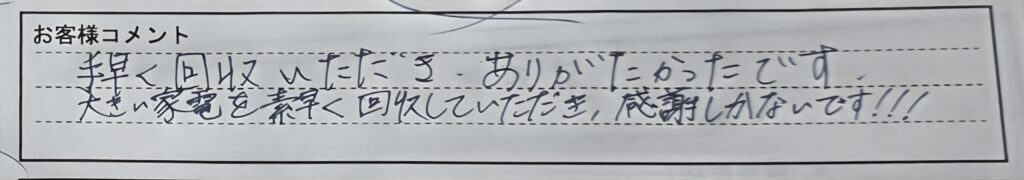 お客様コメント
手早く回収いただき、ありがたかったです.
大きい家電を素早く回収していただき、感謝しかないです!!!